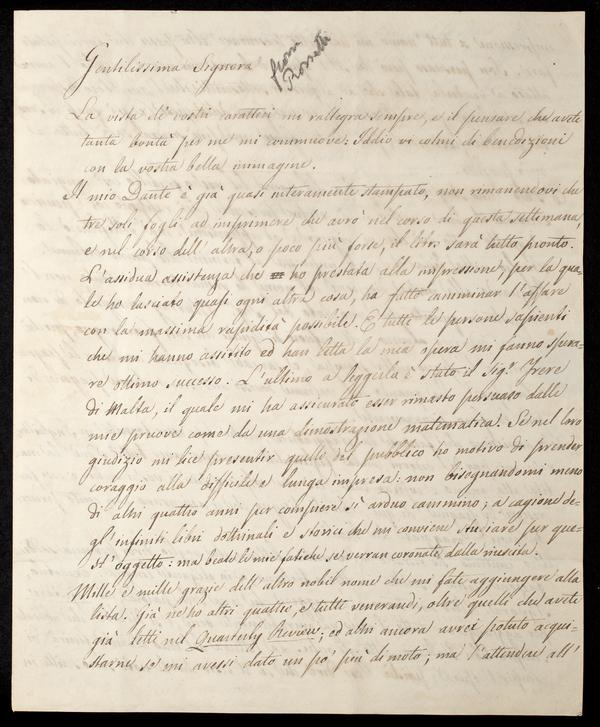 from
Rossetti
Gentilissima Signora
La vista de' vostri caratteri mi rallegra sempre, e il pensare che avete
tanta bontà per me mi commuove: Iddio vi colmi di benedizioni
con la vostra bella immagine.
Il mio Dante è già quasi interamente stampato, non rimanendovi che
tre soli fogli ad imprimere che avrò nel corso di questa settimana,
e nel corso dell' altra, o poco più forse, il libro sarà tutto pronto.
L'assidua assistenza che ho prestata alla impressione, per la qua-
le ho lasciato quasi ogni altra cosa, ha fatto camminar l'affare
con la massima rapidità possibile. E tutte le persone sapienti
che mi hanno assistito ed han letta la mia opera mi fanno spera-
re ottimo successo. L'ultimo a leggerla è stato il Sigr. Frere
di Malta, il quale mi ha assicurato esser rimasto persuaso dalle
mie pruove come da una dimostrazione matematica. Se nel loro
giudizio mi lice presentir quello del pubblico ho motivo di prender
coraggio alla difficile e lunga impresa: non bisognandomi meno
di altri quattro anni per compiere sì arduo cammino; a cagione de-
gl' infiniti libri dottrinali e storici che mi conviene studiare per que-
st' oggetto: ma beate le mie fatiche se verran coronate dalla riuscita.
Mille e mille grazie dell' altro nobil nome che mi fate aggiungere alla
lista. Già ne ho altri quattro, e tutti venerandi, oltre quelli che avete
già letti nel Quarterly Review; ed altri ancora avrei potuto acqui-
starne se mi avessi dato un po' più di moto; ma l'attendere all'